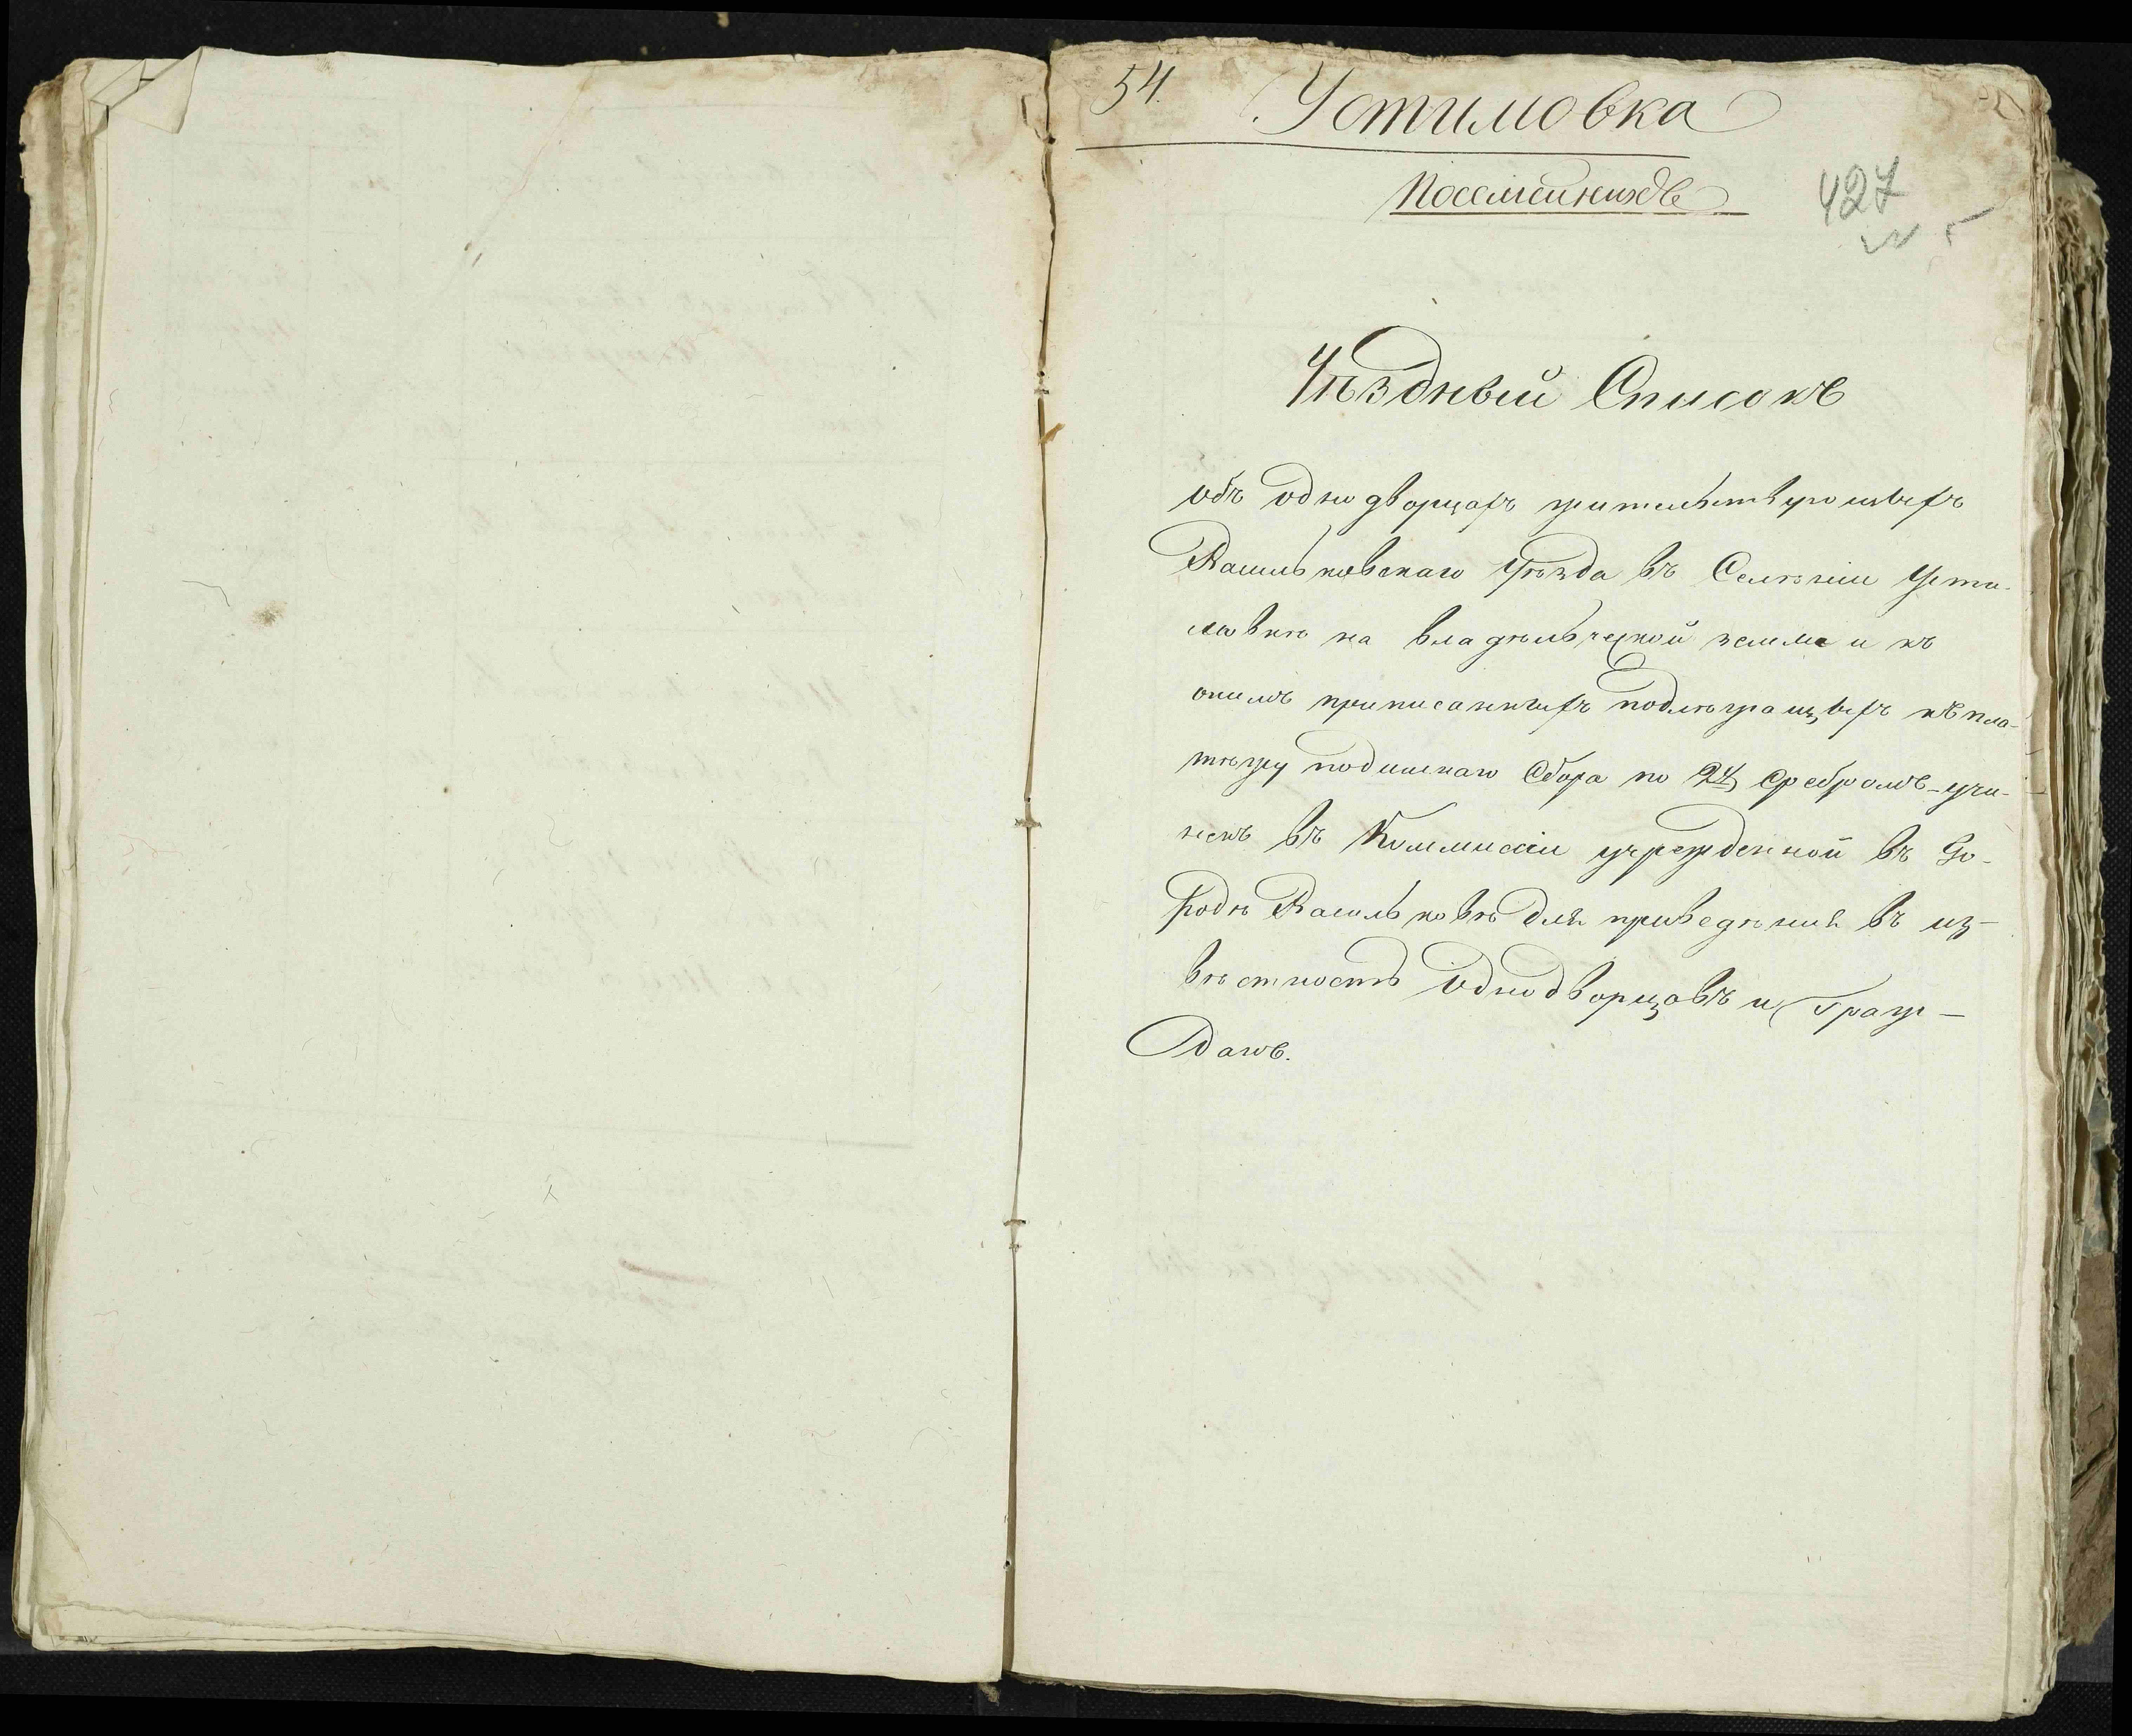 54. Устимовка
427
Уѣздный Списокъ
объ однодворцахъ жительствующихъ
Васильковскаго уѣзда въ Селѣніи Усти-
мовкѣ на владѣльческой земле и къ
онымъ приписанныхъ подлѣжащыхъ къ пла-
тѣжу подымнаго Сбора по Серебромъ учи-
ненъ въ Коммисіи учрежденной въ Го-
родѣ Васильковѣ для приведѣнія въ из-
вѣстность Однодворцовъ и Граж-
данъ.